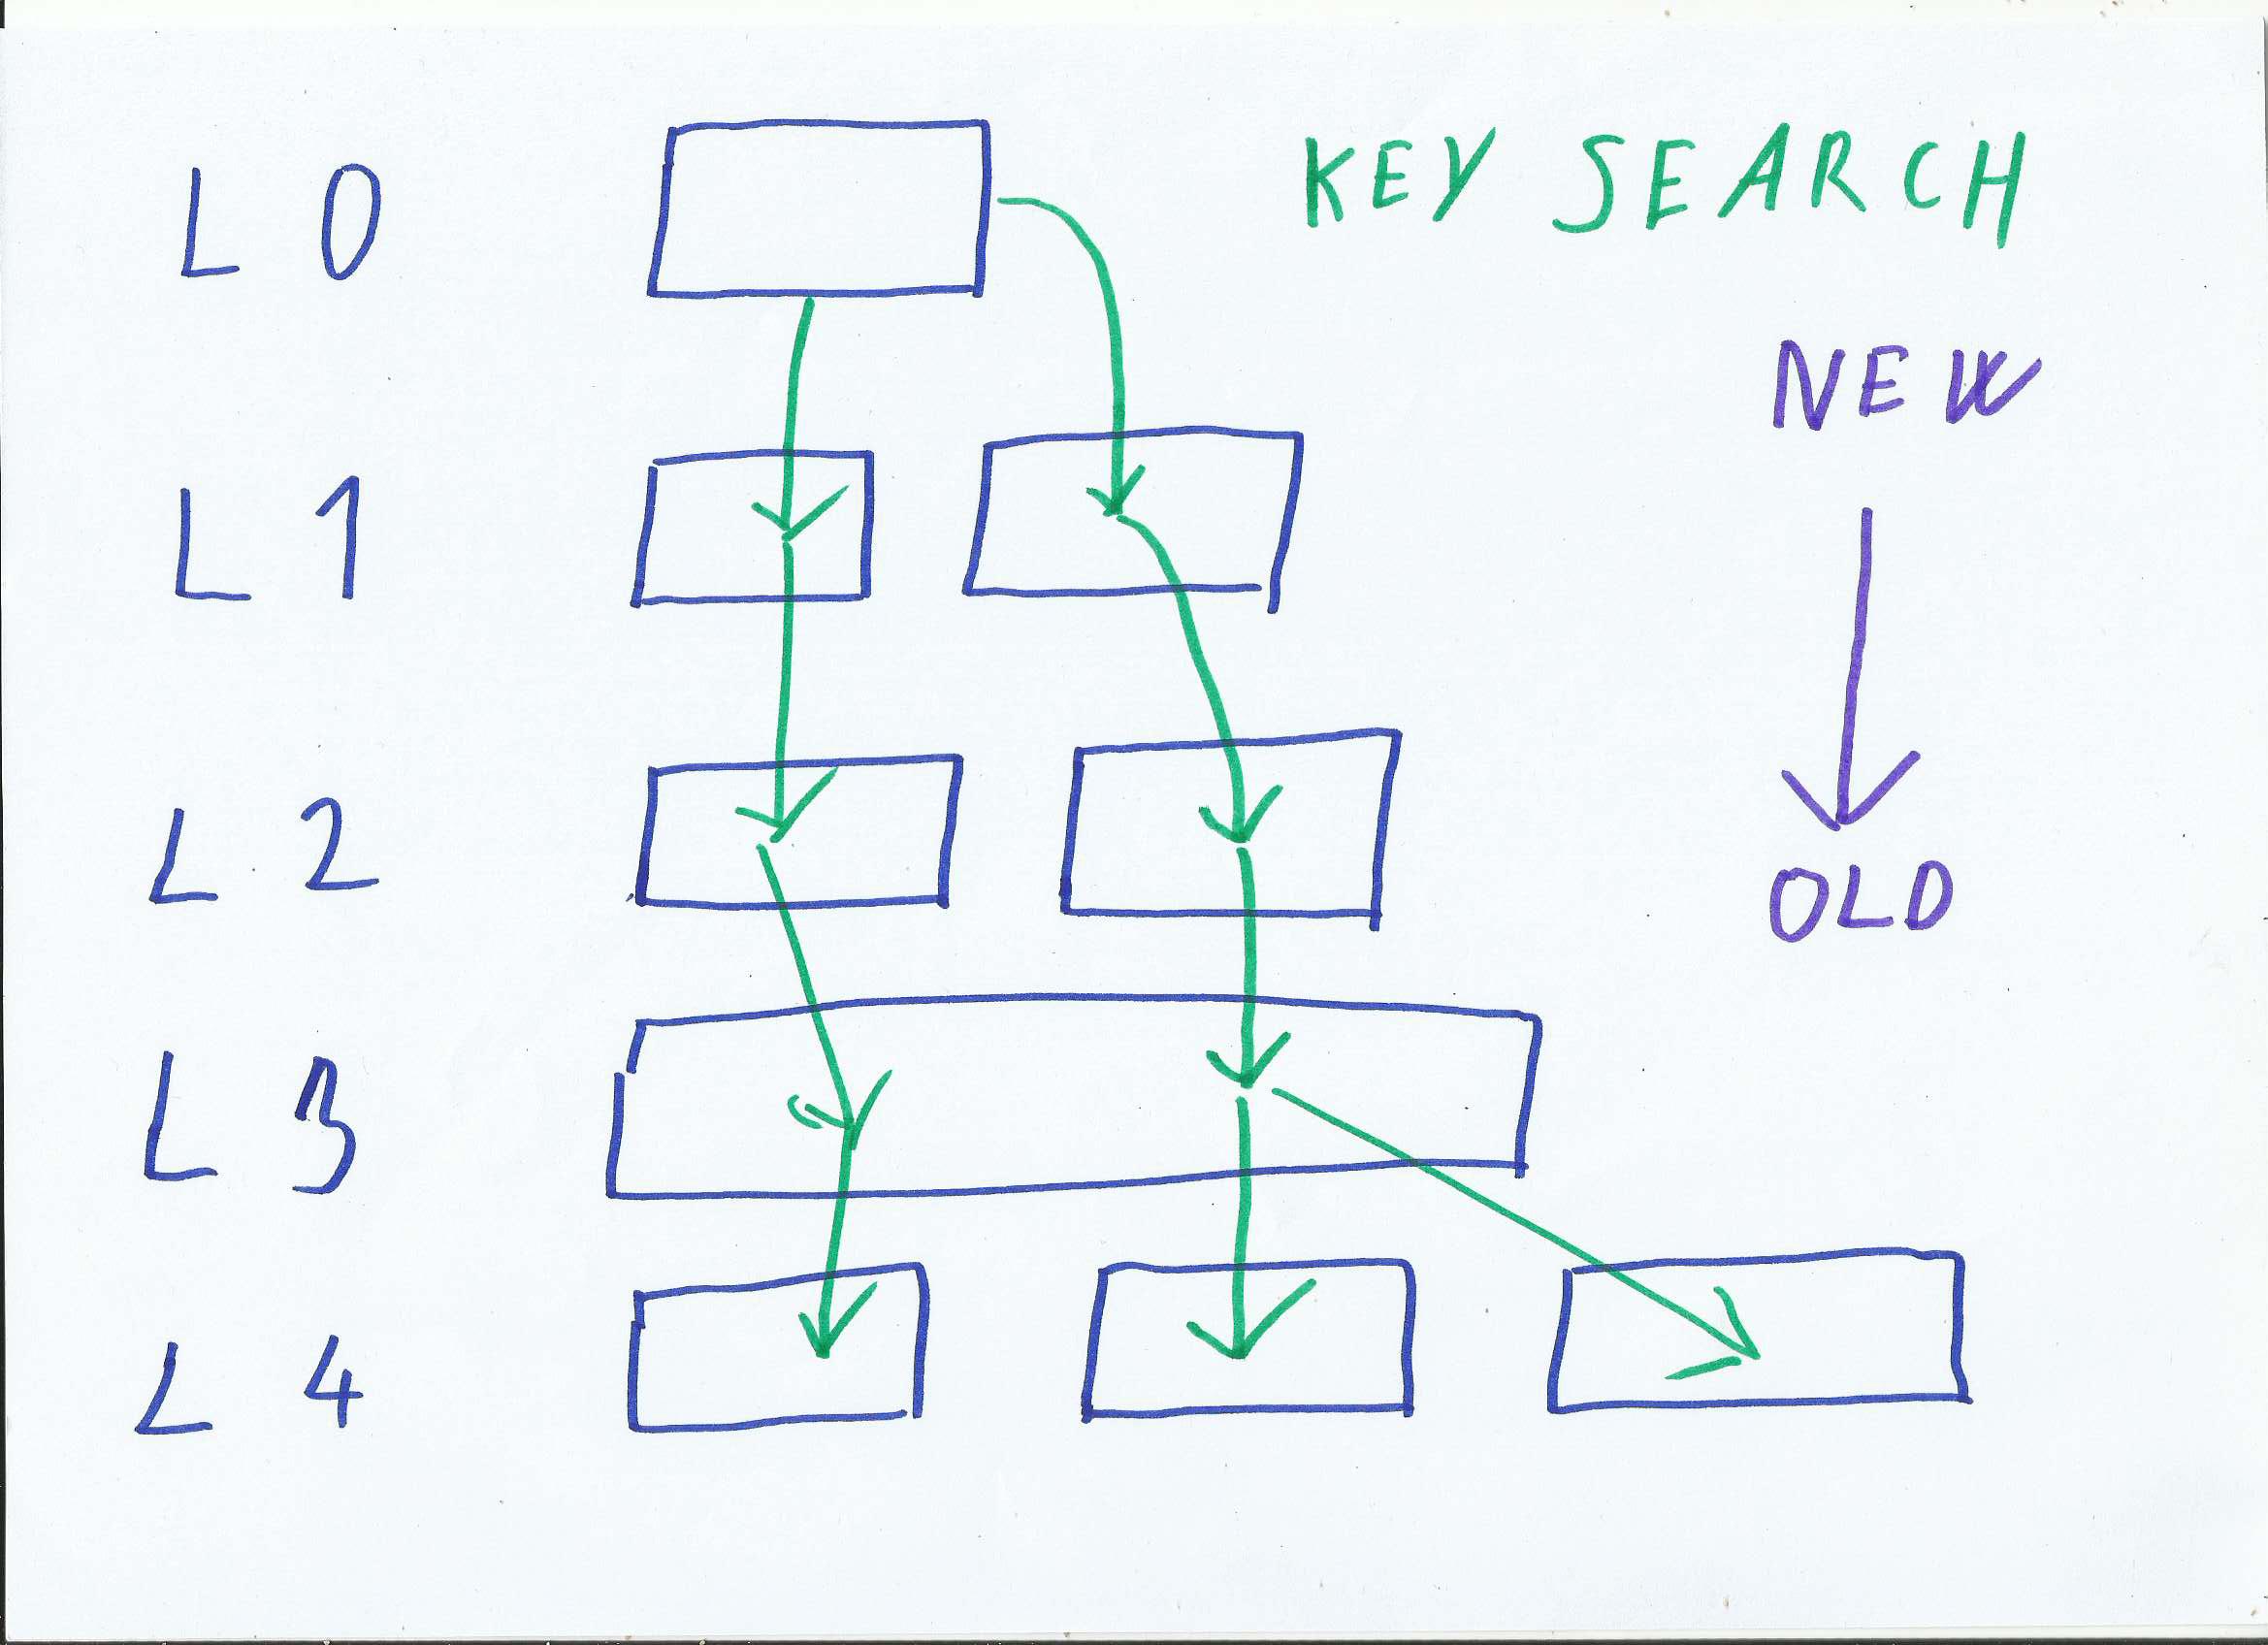 L 0
KEY SEARCH
NEW
L 1
L 2
OLD
L 3
L 4